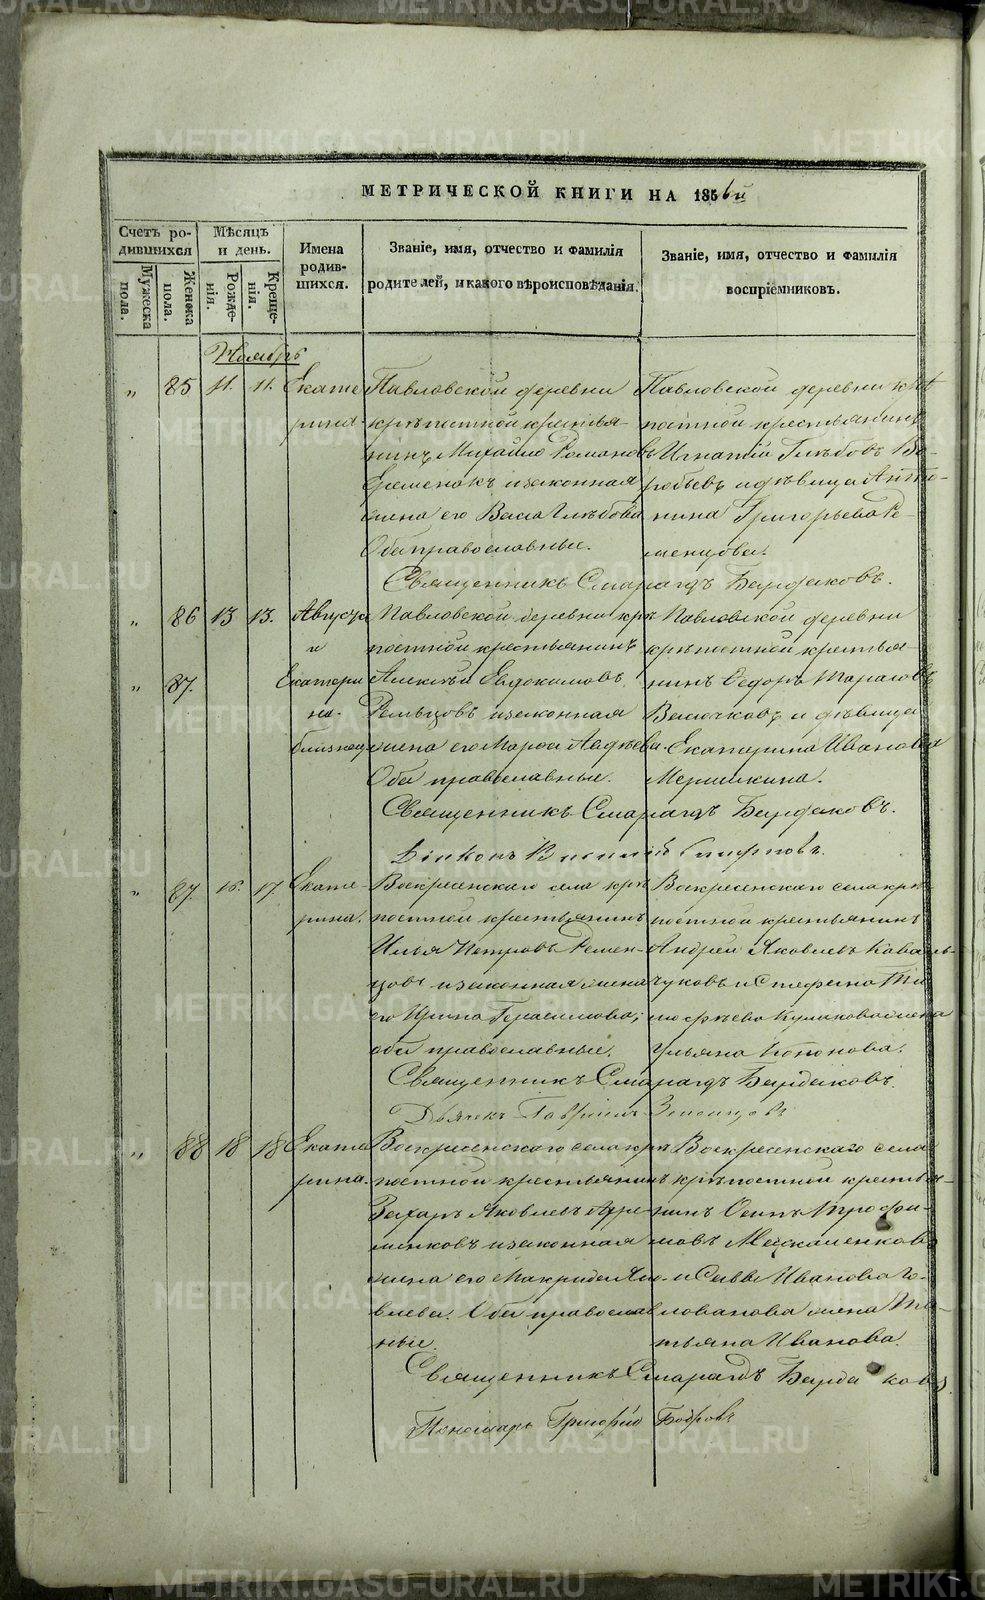 МЕТРИЧЕСКОЙ КНИГИ НА 1856й
Счетъ ро-
дившихся
Мѣсяцъ
и день.
Имена
родив-
шихся.
Званіе, имя, отчество и фамилія
родителей, и какого вѣроисповѣданія.
Званіе, имя, отчество и фамилія
воспріемниковъ.
Мужеска
пола.
Женска
пола.
Рожде-
нія.
Креще-
нія.
Ноябрь
" 85 11. 11. Екате
рина
Павловской деревни
крѣпостной крестья-
нинъ Михайло Романовъ
законная
жена его Васса Глѣбова
Оба православные.
Павловской деревни крѣ
постной крестьянинъ
Игнатій Глѣбовъ Во-
робьевъ и дѣвица Анто-
нина Григорьева Ре-
менцова.
Священникъ Смарагдъ Бардаковъ.
" 86 13 13. Августа
и
" 87. Екатери
на
близнецы
Павловской деревни крѣ
постной крестьянинъ
Алексѣй Евдокимовъ
и законная
жена его Марѳа Авдѣева
Оба православные.
Павловской деревни
крѣпостной крестья-
нинъ Ѳедоръ Тарасовъ
и дѣвица
Екатерина Иванова
Священникъ Смарагдъ Бардаковъ.
Діаконъ Смирновъ.
" 87. 16. 17. Екате-
рина.
Воскресенскаго села крѣ
постной крестьянинъ
Илья Петровъ Ремен-
цовъ и законная жена
его Ирина Герасимова;
оба православные.
Воскресенскаго села крѣ
постной крестьянинъ
Андрей Яковлевъ
и Стефана Ти
моѳѣева Кулакова жена
Ульяна
Священникъ Смарагдъ Бардаковъ.
Дьячекъ Гавріилъ
" 88 18 18 Екате
рина.
Воскресенскаго села крѣ
постной крестьянинъ
Захаръ Яковлевъ Ефре
менковъ и законная
жена его Макрида Яко-
влева. Оба православ
ные.
Воскресенскаго села
крѣпостной крестья-
нинъ Осипъ Трофи-
мовъ Москаленковъ
и Саввы Иванова Го-
лованова жена Та-
тьяна Иванова.
Священникъ Смарагдъ Бардаковъ.
Пономарь Григорій Бобровъ
METRIKI.GASO-URAL.RU